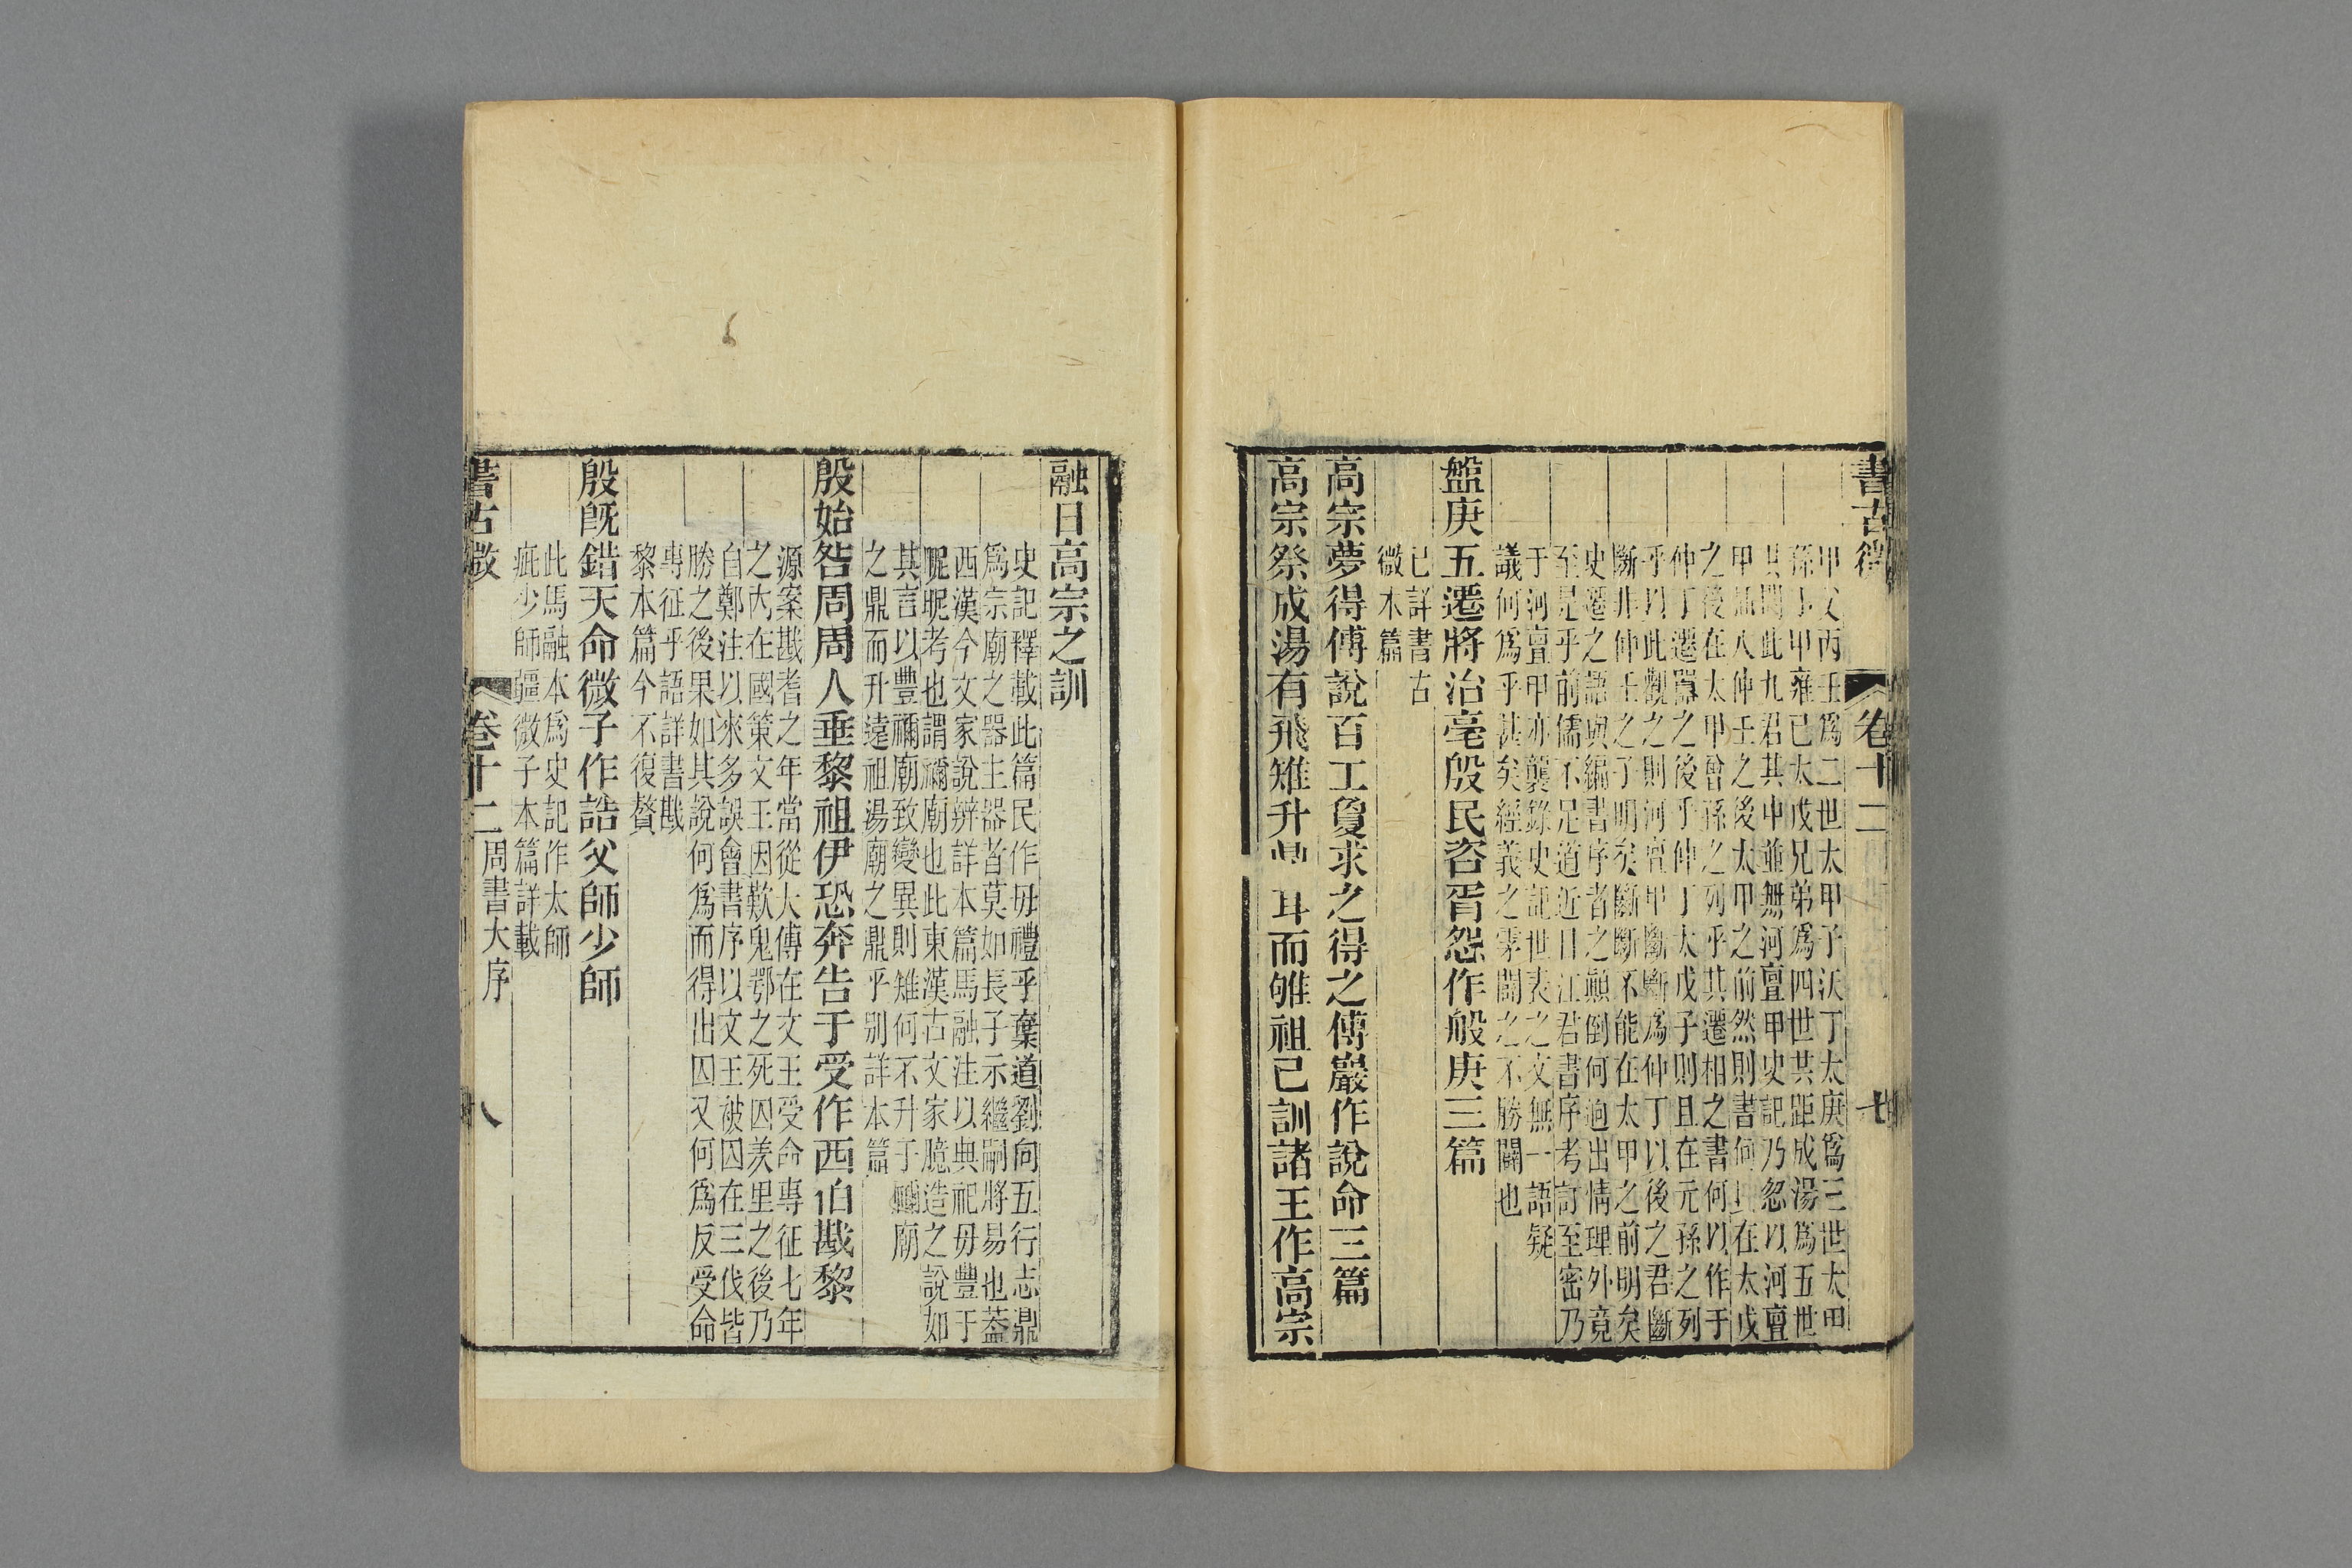 書古微
卷十二
七
甲父丙壬爲二世太甲子沃丁太庚爲三世太甲
孫小甲雍己太戊兄弟爲四世其距成湯爲五世
且閒此九君其中並無河亶甲史記乃忽以河亶
甲加入仲壬之後太甲之前然則書何以在太戊
之後在太甲曾孫之列乎其遷相之書何以作于
仲丁遷囂之後乎仲丁太戊子則且在元孫之列
乎以此觀之則河亶甲斷斷爲仲丁以後之君斷
斷非仲壬之子明矣斷斷不能在太甲之前明矣
史遷之語與編書序者之顛倒何逈出情理外竟
至是乎前儒不足道近日江君書序考訂至密乃
于河亶甲亦襲錄史記世表之文無一語疑
議何爲乎甚矣經義之霧闇之不勝闢也
盤庚五遷將治亳殷民咨胥怨作般庚三篇
已詳書古
微本篇
高宗夢得傅說百工夐求之得之傅巖作說命三篇
高宗祭成湯有飛雉升鼎耳而雊祖己訓諸王作高宗
融日高宗之訓
史記釋載此篇民作毋禮乎棄道劉向五行志鼎
爲宗廟之器主器者莫如長子示繼嗣將易也葢
西漢今文家說辨詳本篇馬融注以典祀毋豐于
昵昵考也謂禰廟也此東漢古文家臆造之說如
其言以豐禰廟致變異則雉何不升于禰廟
之鼎而升遠祖湯廟之鼎乎別詳本篇
殷始咎周周人乗黎祖伊恐奔告于受作西伯戡黎
源案戡耆之年當從大傳在文王受命專征七年
之內在國策文王因歎鬼鄂之死囚羑里之後乃
自鄭注以來多誤會書序以文王被囚在三伐皆
勝之後果如其說何爲而得出囚又何爲反受命
專征乎語詳書戡
黎本篇今不復贅
殷旣錯天命微子作誥父師少師
此馬融本爲史記作太師
疵少師彊微子本篇詳載
書古微
卷十二
周書大序
八